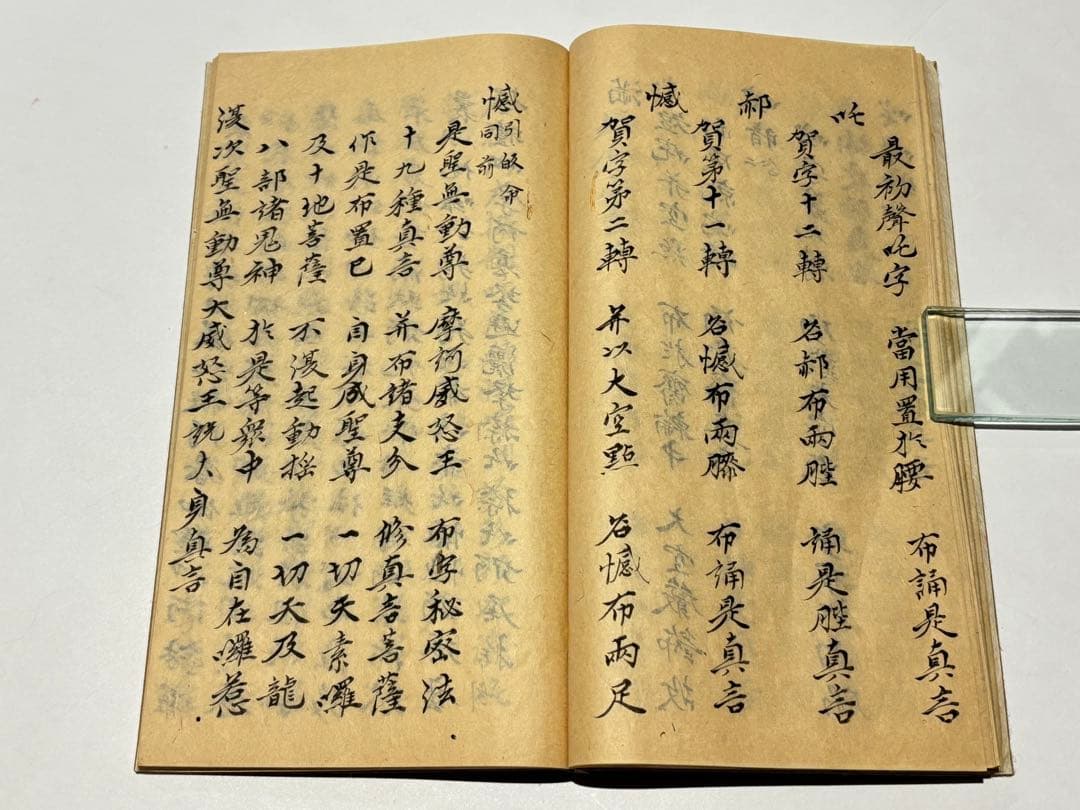 最初聲吒字 當用置於腰 布誦是真言
吒
賀字十二轉 名郝布兩䏶 誦是䏶真言
郝
賀第十一轉 名憾布兩膝 布誦是真言
憾
賀字第二轉 并以大空點 名憾布兩足
憾引皈命同前
是聖無動尊 摩訶威怒王 布字秘密法
十九種真言 并布諸支分 修真言菩薩
作是布置已 自身成聖尊 一切天素囉
及十地菩薩 不復起動搖 一切天及龍
八部諸鬼神 於是等衆中 為自在囉惹
復次聖無動尊大威怒王説大身真言